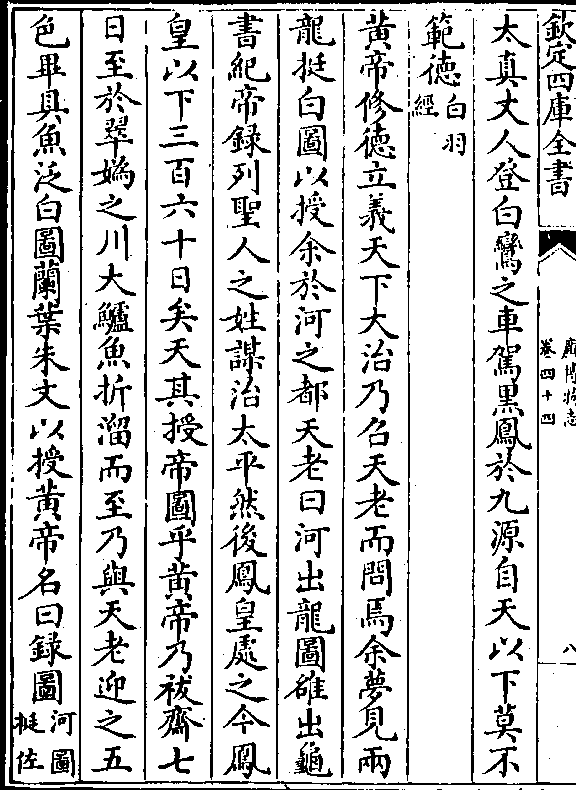 欽定四庫全書
廣博物志
卷四十四
八
太真丈人登白鸞之車駕黑鳳於九源自天以下莫不
範德白羽經
黃帝修德立義天下大治乃召天老而問焉余夢見兩
龍挺白圖以授余於河之都天老曰河出龍圖雒出龜
書紀帝錄列聖人之姓謀治太平然後鳳皇處之今鳳
皇以下三百六十日矣天其授帝圖乎黃帝乃祓齋七
日至於翠媯之川大鱸魚折溜而至乃與天老迎之五
色畢具魚泛白圖蘭葉朱文以授黃帝名曰録圖河圖挺佐